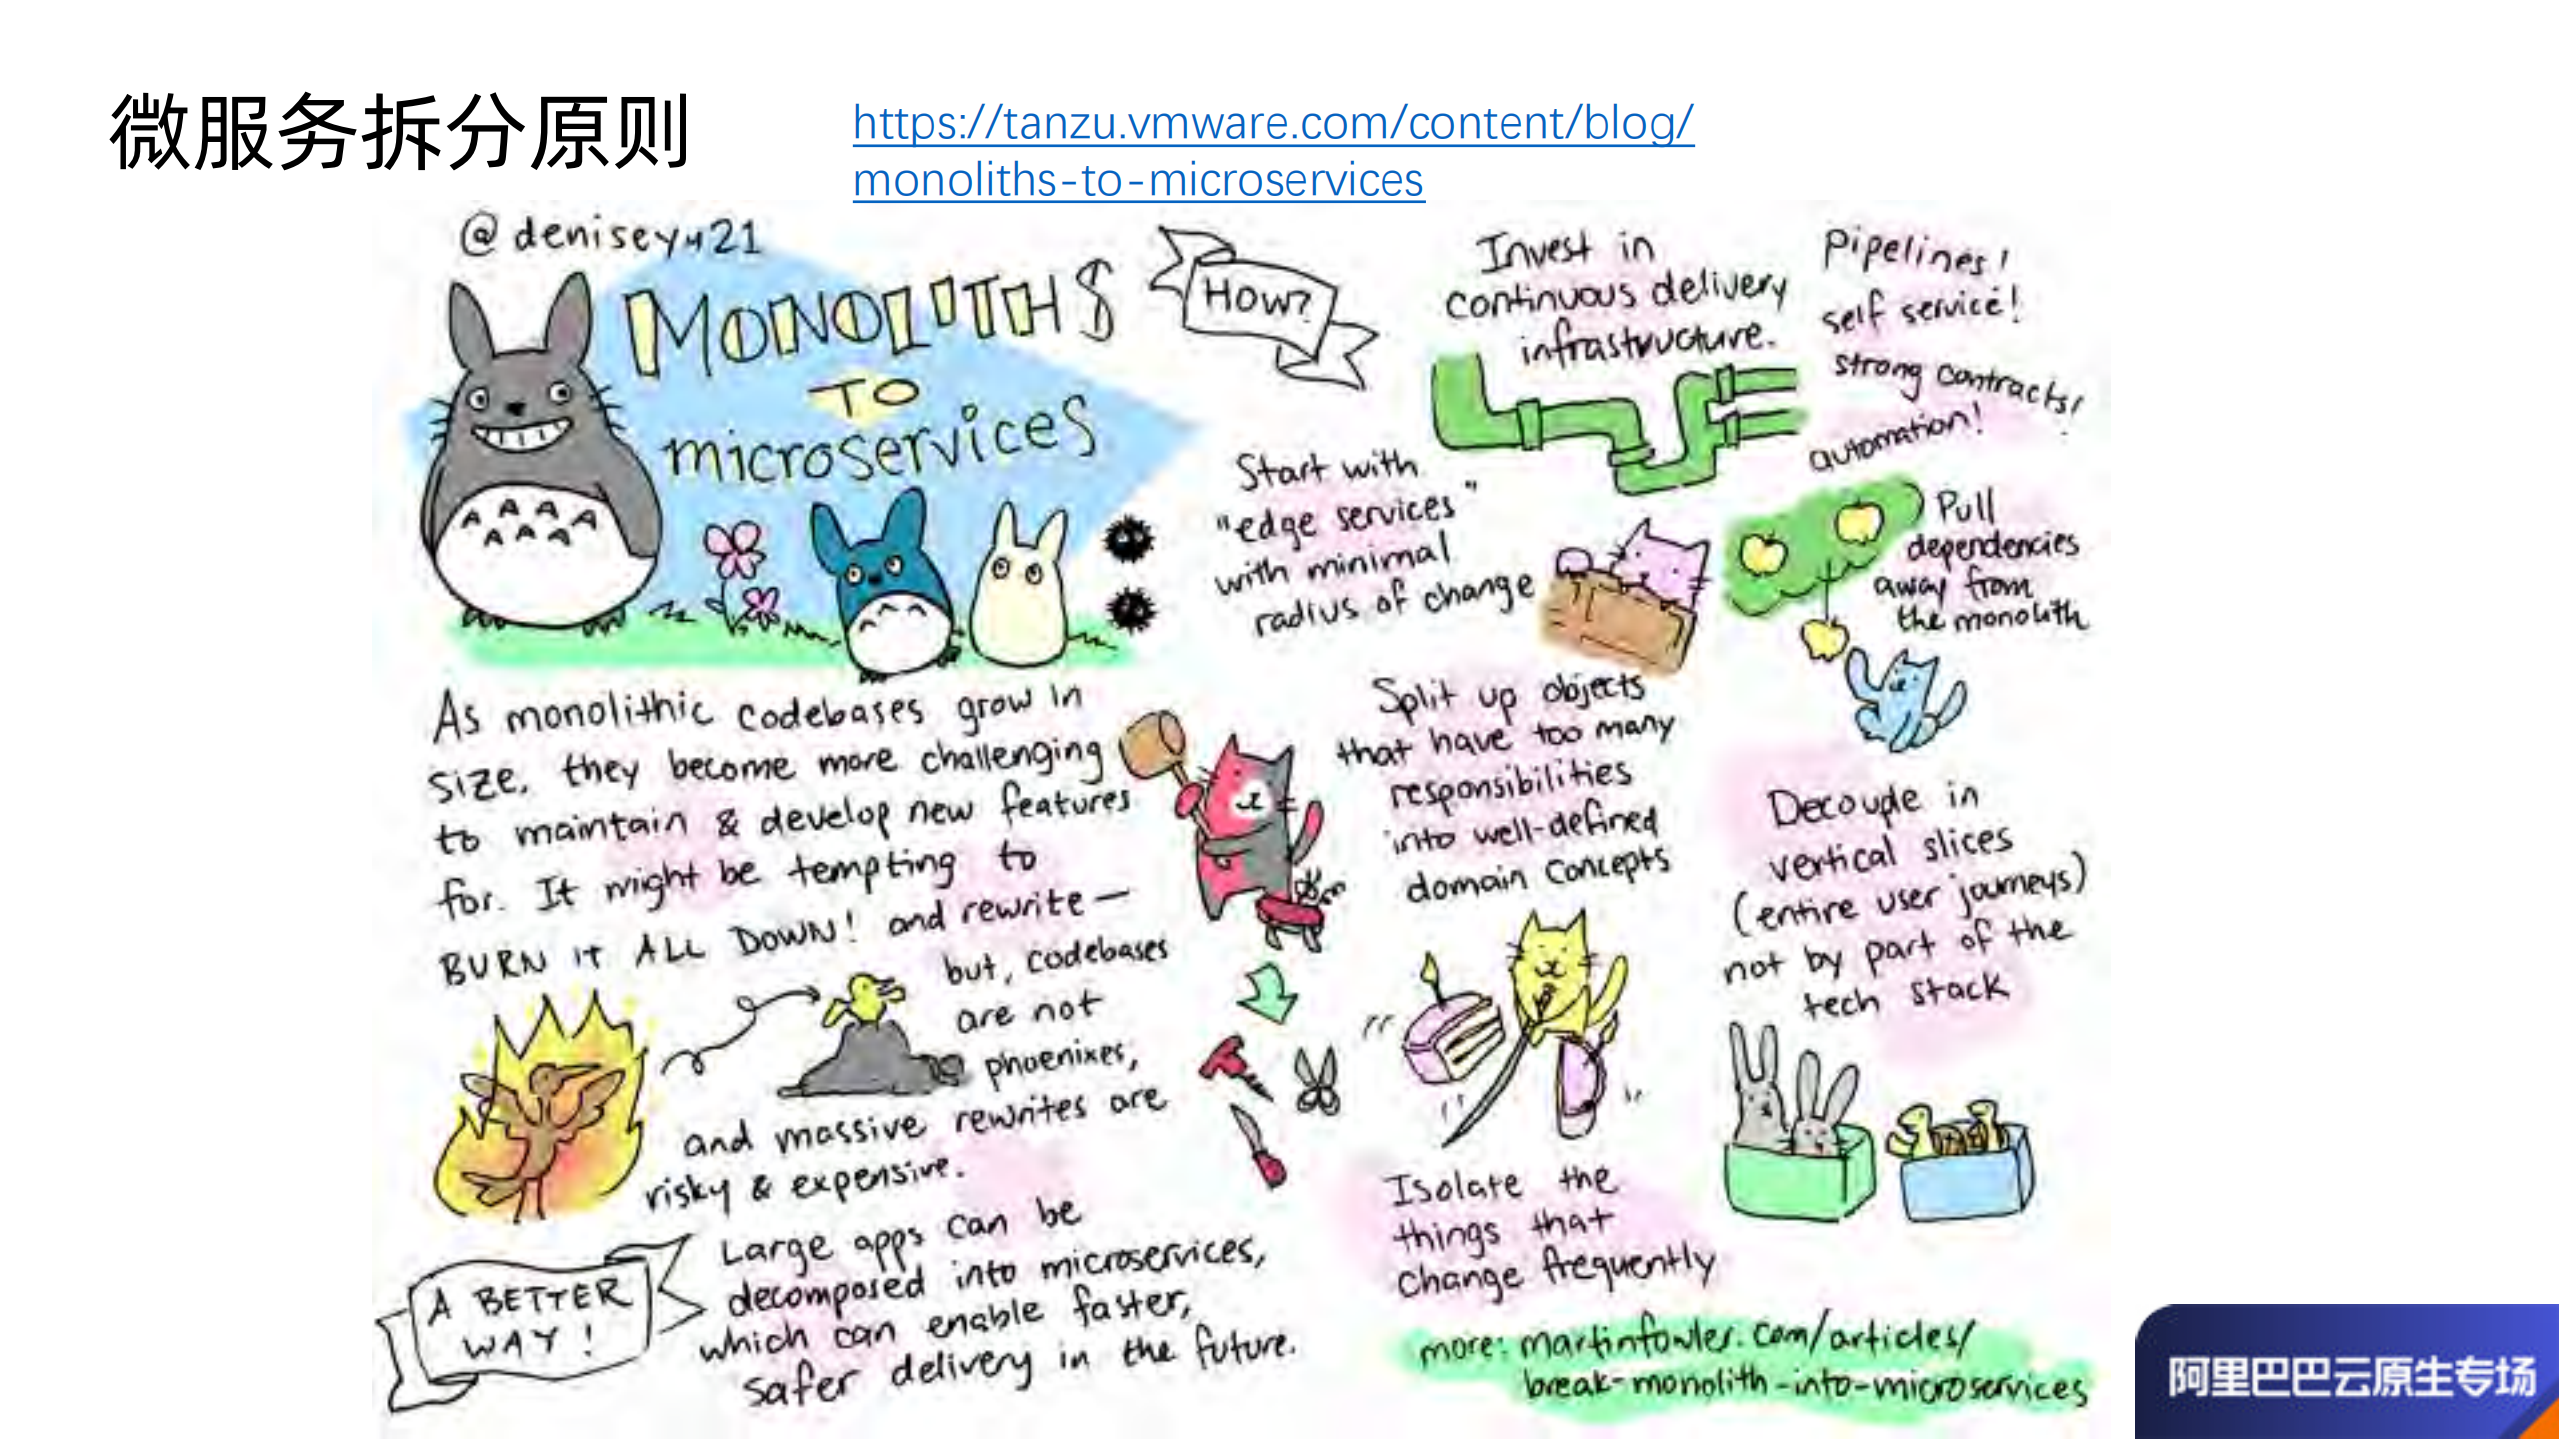 微服务拆分原则
https://tanzu.vmware.com/content/blog/
monoliths-to-microservices
@deniseyu21
MONOLITHS
TO
microservices
As monolithic codebases grow in
size, they become more challenging
to maintain & develop new features
for. It might be tempting to
BURN IT ALL DOWN! and rewrite—
but, codebases
are not
phoenixes,
and massive rewrites are
risky & expensive.
A BETTER
WAY!
Large apps can be
decomposed into microservices,
which can enable faster,
safer delivery in the future.
HOW?
Invest in
continuous delivery
infrastructure.
Pipelines!
self service!
strong contracts!
automation!
Start with
"edge services"
with minimal
radius of change
Pull
dependencies
away from
the monolith
Split up objects
that have too many
responsibilities
into well-defined
domain concepts
Decouple in
vertical slices
(entire user journeys)
not by part of the
tech stack
Isolate the
things that
change frequently
more: martinfowler.com/articles/
break-monolith-into-microservices
阿里巴巴云原生专场